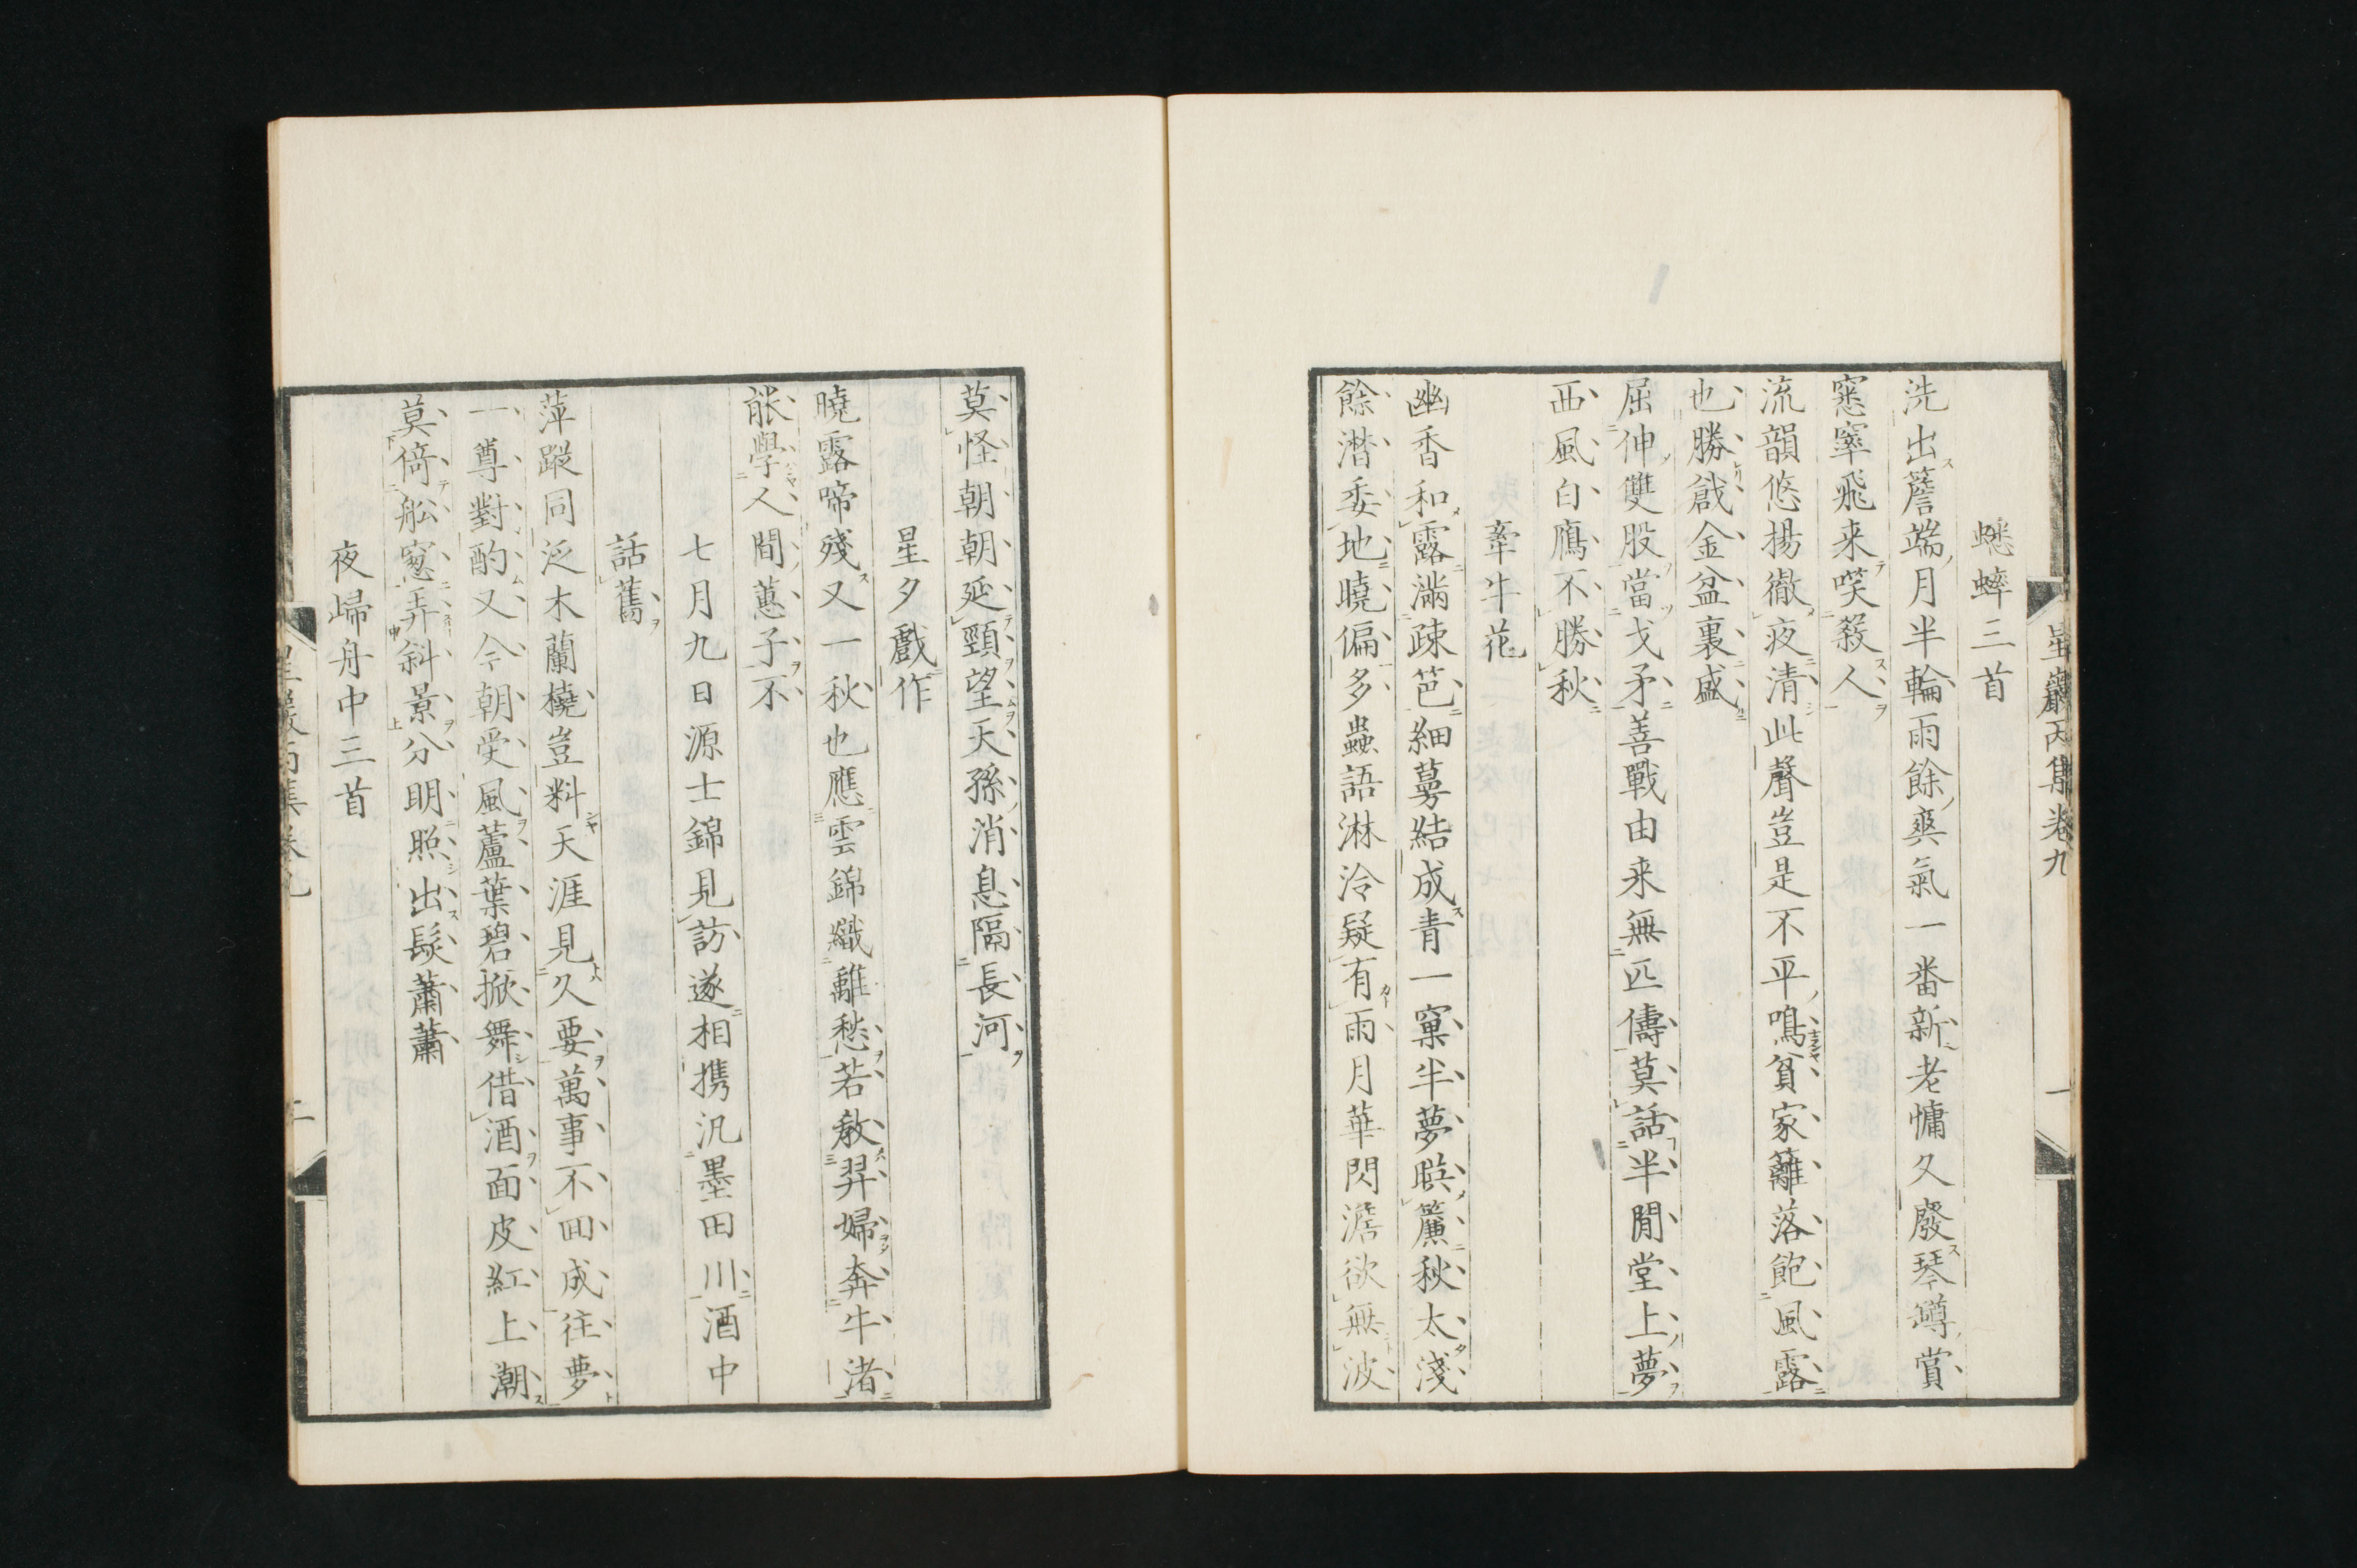 蟋蟀三首
洗出簷端月半輪雨餘爽氣一番新老慵久廢琴罇賞
窸窣飛来咲殺人
流韻悠揚徹夜清此聲豈是不平鳴貧家籬落飽風露
也勝戧金盆裏盛
屈伸雙股當戈矛善戰由来無匹儔莫話半閒堂上夢
西風白鴈不勝秋
牽牛花
幽香和露滿疎笆細蔓結成青一窠半夢驕簾秋太淺
餘潛委地曉偏多蟲語淋泠疑有雨月華閃澹欲無波
莫怪朝朝延頸望天孫消息隔長河
星夕戲作
曉露啼殘又一秋也應雲錦織離愁若敎羿婦奔牛渚
能學人間蕙子不
七月九日源士錦見訪遂相携汎墨田川酒中
話舊
萍蹤同泛木蘭橈豈料天涯見久要萬事不回成往夢
一尊對酌又今朝受風蘆葉碧掀舞借酒面皮紅上潮
莫倚舩窻弄斜景分明照出髩蕭蕭
夜歸舟中三首
星巖丙集卷九
一
星巖丙集卷九
二